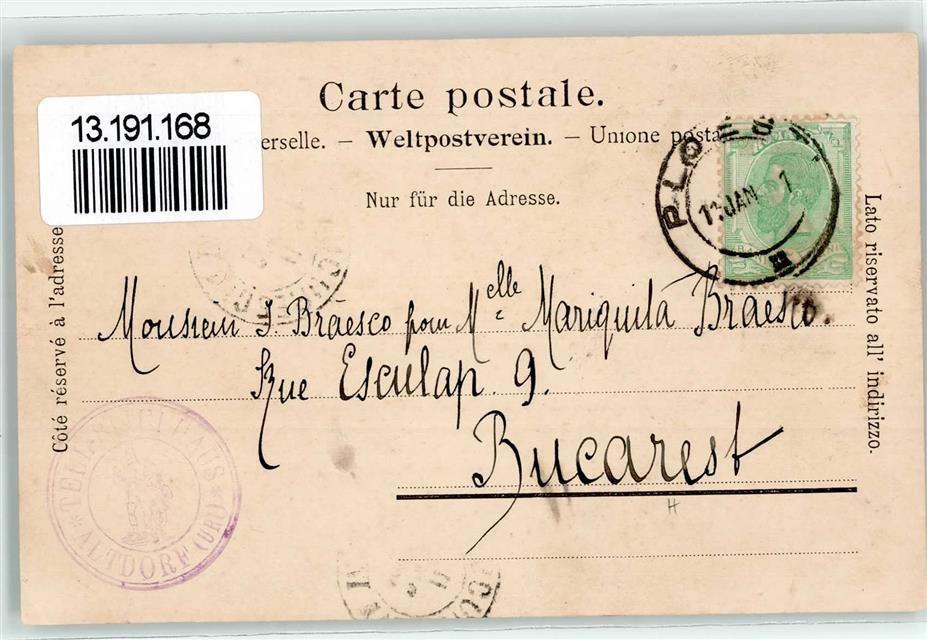 Carte postale.
13.191.168
erselle. – Weltpostverein. – Unione posta
Nur für die Adresse.
PLOE
13 JAN 1
Côté réservé à l'adresse
Lato riservato all' indirizzo.
Monsieur J. Braesco pour Melle Mariquita Braesco.
Rue Esculap 9.
Bucarest
ALTDORF (URI)